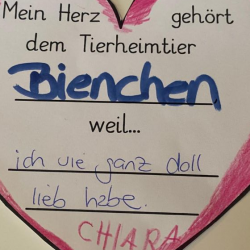 Mein Herz gehört
dem Tierheimtier
Bienchen
weil...
ich vie ganz doll
lieb habe.
CHIARA